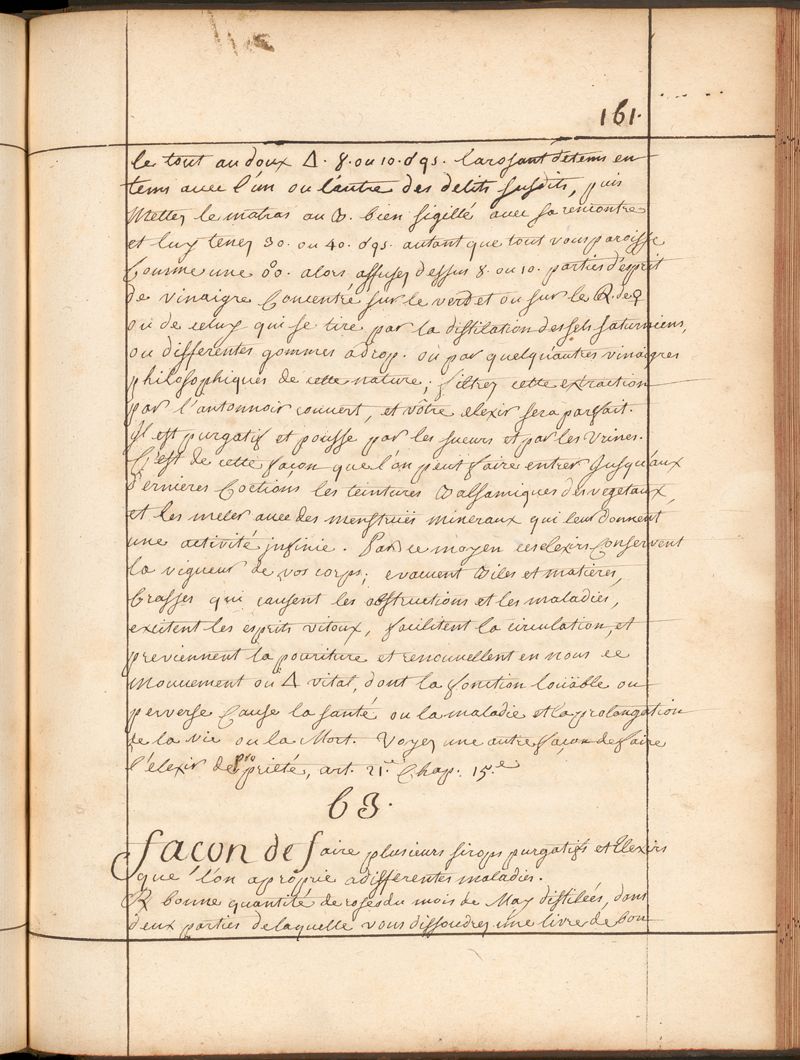 161.
le tout au doux Δ. 8. ou 10. d'qs. l'arosant de tems en
tems avec l'un ou l'autre des delits susdits, puis
Mettez le matras au B. bien sigillé avec sa rencontre
et luy tenez 30. ou 40. d'qs. autant que tout vous paroisse
Comme une o°o. alors affusez dessus 8. ou 10. parties d'esprit
de vinaigre Concentré sur le verdet ou sur le de ♀
ou de celuy qui se tire par la distilation des sels saturniens,
ou differentes gommes adrop. ou par quelqu'autres vinaigres
philosophiques de cette nature; filtrez cette extraction
par l'antonnoir couvert, et vôtre elexir sera parfait.
Il est purgatif et pousse par les sueurs et par les Urines.
C'est de cette façon que l'on peut faire entrer Jusqu'aux
dernieres Coctions les teintures Balsamiques des vegetaux,
et les meler avec des menstruës mineraux qui leur donnent
une activité jnfinie. Par ce moyen ces elexirs Conservent
la vigueur de vos corps; evacuent Biles et matieres,
Crasses qui causent les obstructions et les maladies,
excitent les esprits vitaux, facilitent la circulation, et
previennent la pouriture et renouvellent en nous ce
Mouvement ou Δ vital, dont la fonction loüable ou
perverse Cause la santé ou la maladie et la prolongation
de la vie ou la Mort. Voyez une autre façon de faire
l'elexir de proprieté, art. 21.e Chap. 15.e
63.
façon de faire plusieurs sirops purgatifs et Elexirs
que l'on aproprie a differentes maladies.
℞ bonne quantité de roses du mois de May distilées, dans
deux parties de laquelle vous dissoudrez une livre de bon